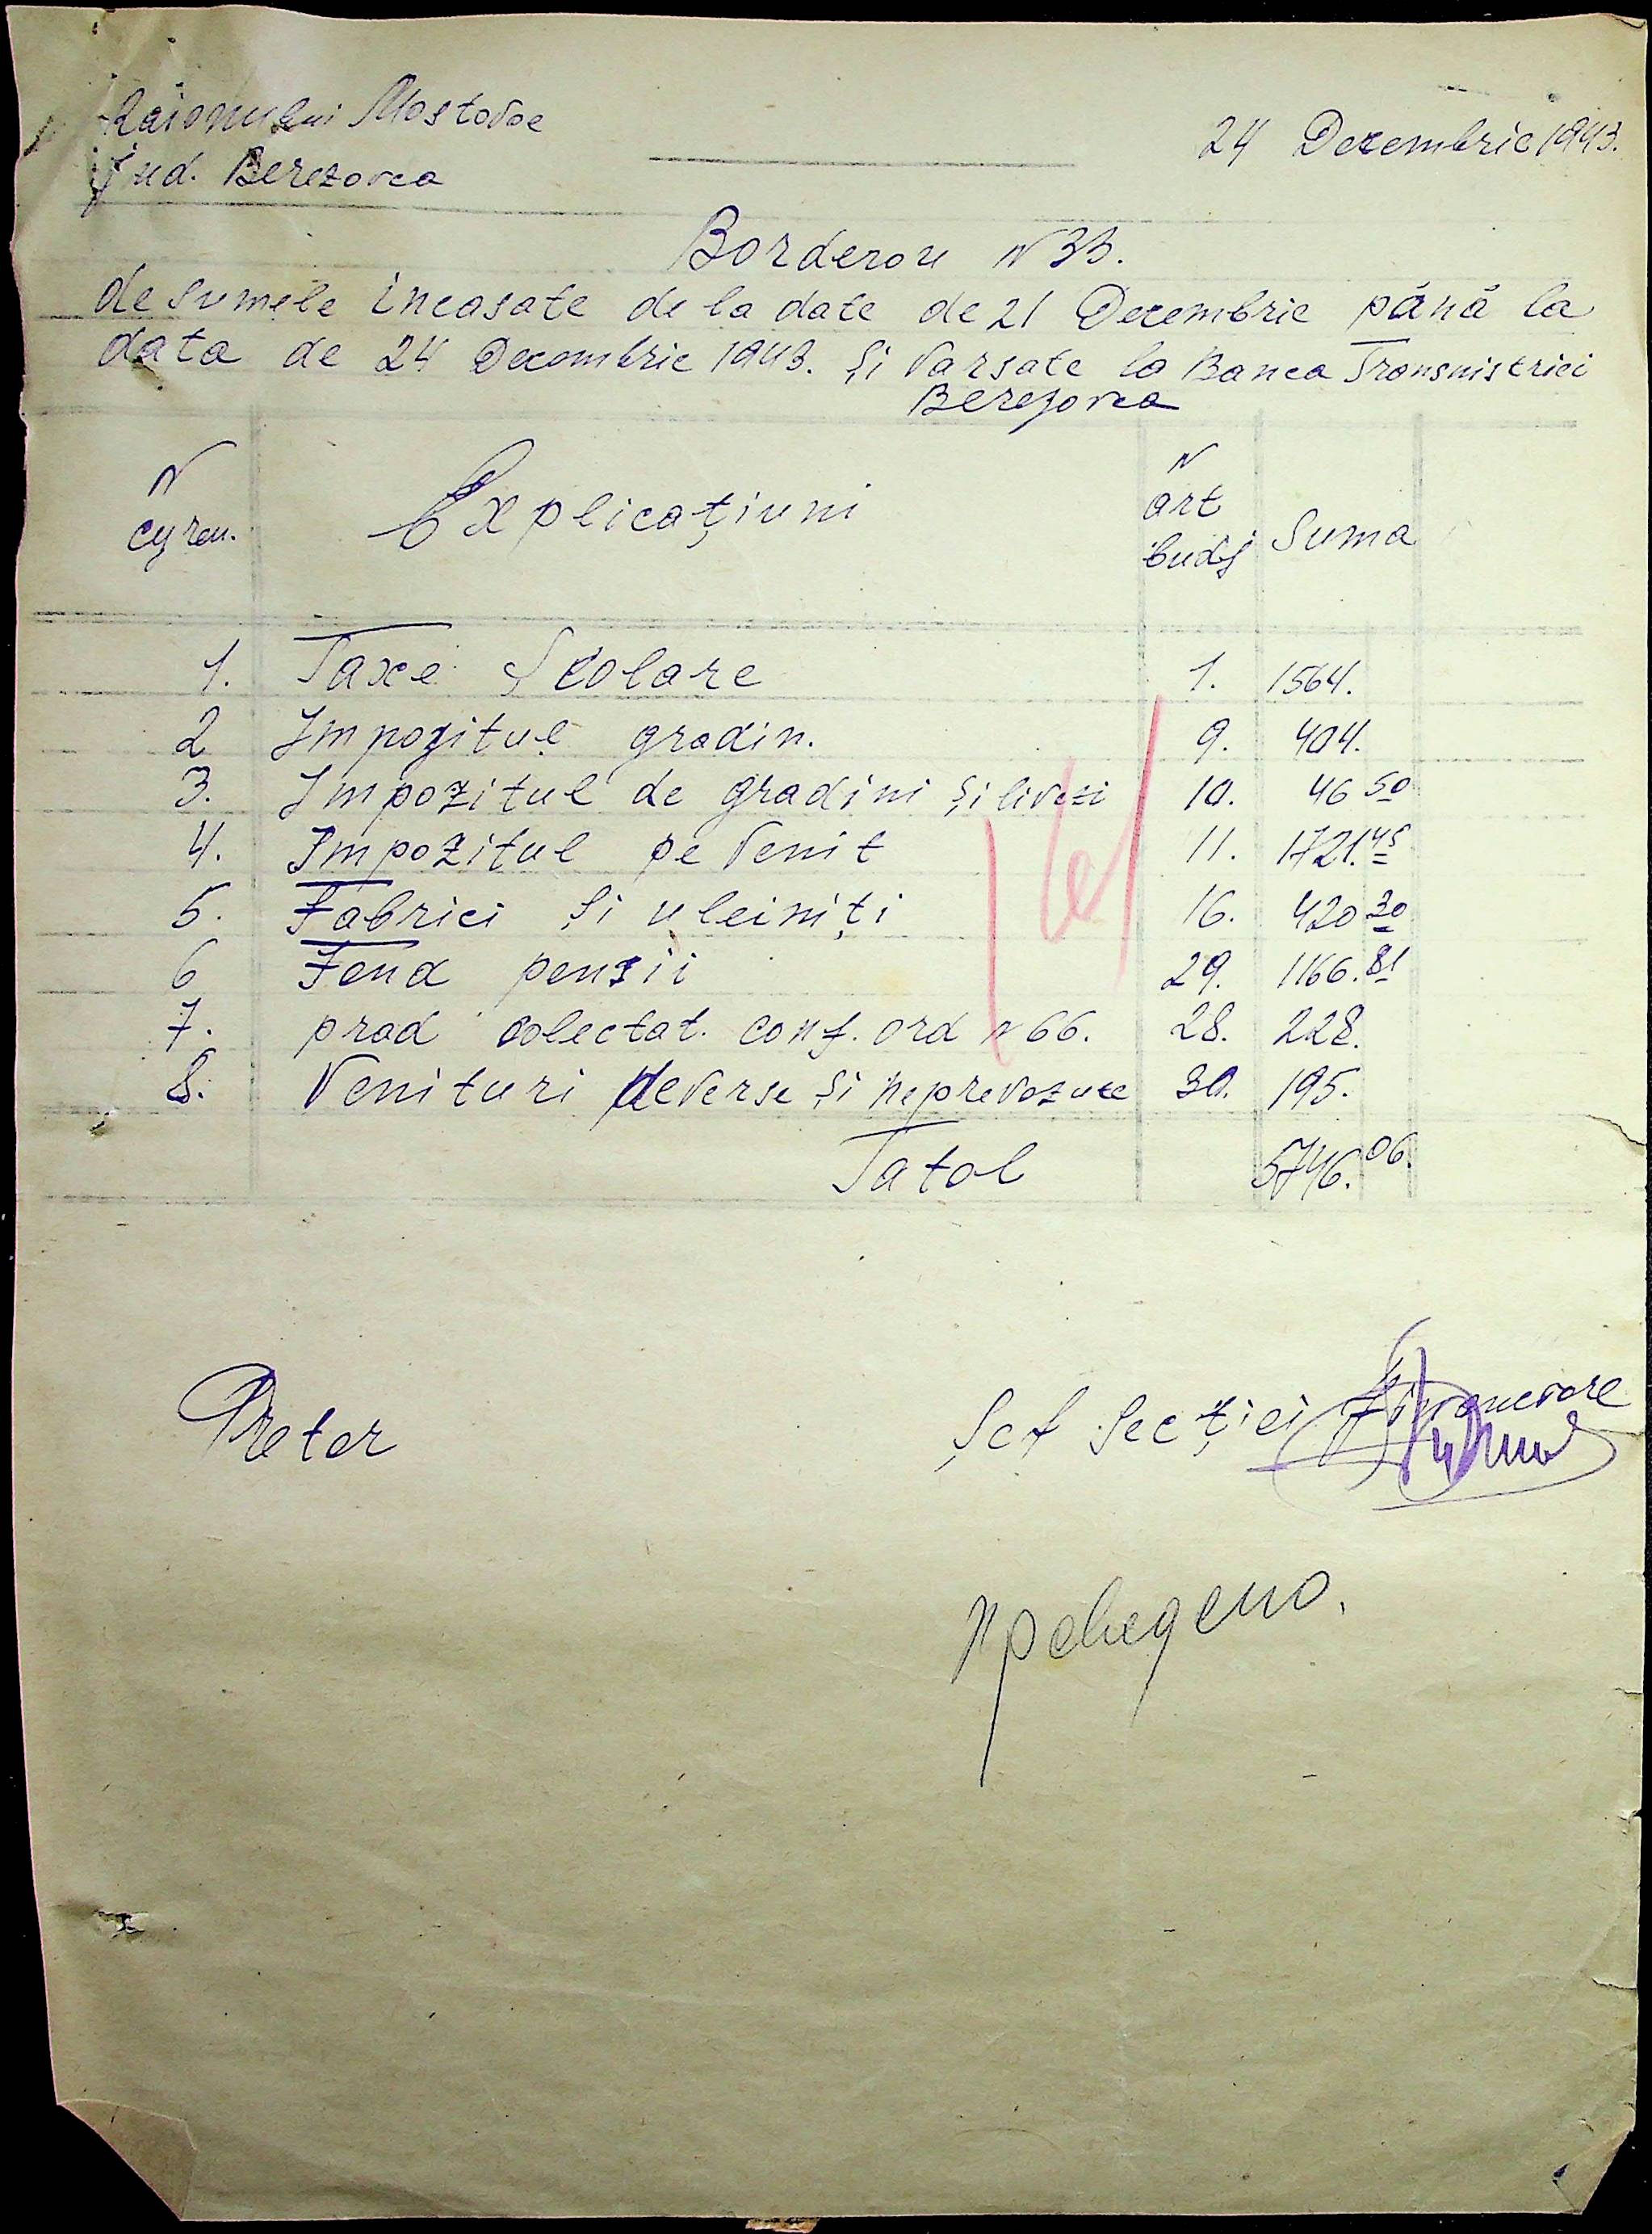 Raionului Mostovoe
24 Decembrie 1943.
Jud. Berezovca
Borderou N 33.
de sumele incasate de la date de 21 Decembrie pănă la
data de 24 Decembrie 1943. și varsate la Banca Transnistriei
Berezovca
N cyren. Explicațiuni N art budj Suma
1. Taxe Școlare 1. 1564.
2 Impozitul gradin. 9. 404.
3. Impozitul de gradini și livezi 10. 46 50
4. Impozitul pe Venit 11. 1721.45
5. Fabrici și uleiniți 16. 420 30
6 Fond pensii 29. 1166.81
7. prad colectat. conf. ord N 66. 28. 228.
8. Venituri deverse și neprevozute 30. 195.
Tatol 5746.06.
Pretor
Șef Secției Financeare
Проведено.